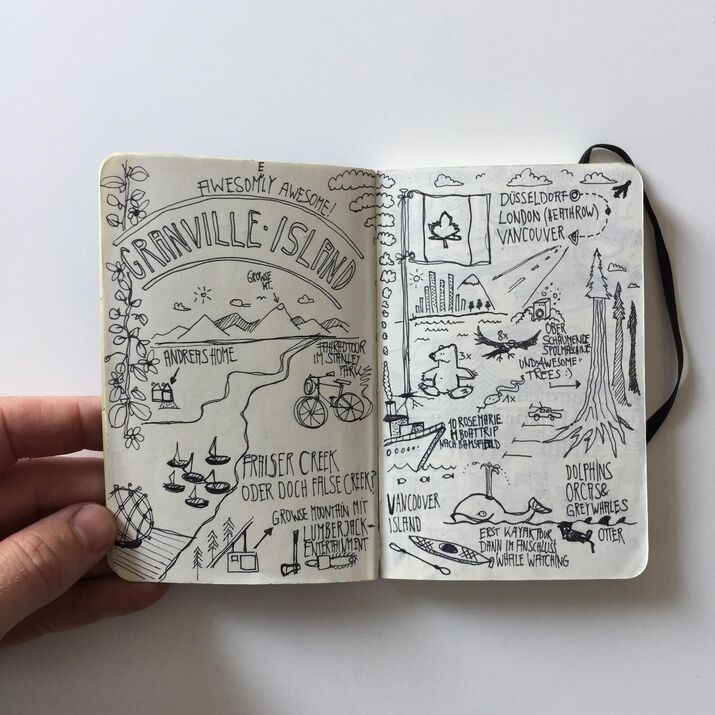 AWESOMLY AWESOME!
E
GRANVILLE·ISLAND
GROWSE
MT.
ANDREAS HOME
FAHRRADTOUR
IM STANLEY
PARK
FRAISER CREEK
ODER DOCH FALSE CREEK?
GROWSE MOUNTAIN MIT
LUMBERJACK-
ENTERTAINMENT
DÜSSELDORF
LONDON (HEATHROW)
VANCOUVER
8x
3x
1x
ÜBER
SCHÄUMENDE
SPÜLMASCHINE
UND AWESOME-
TREES :)
ROSE MARIE
BOATTRIP
NACH BAMSFIELD
VANCOUVER
ISLAND
DOLPHINS
ORCAS &
GREY WHALES
OTTER
ERST KAYAKTOUR
DANN IM ANSCHLUSS
WHALE WATCHING